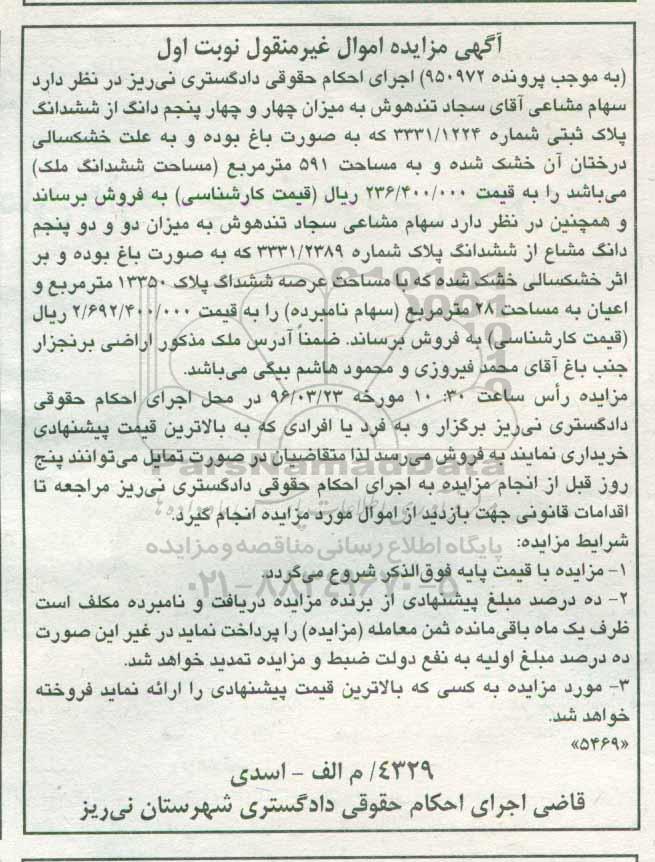 آگهی مزایده اموال غیرمنقول نوبت اول
(به موجب پرونده ۹۵۰۹۷۲) اجرای احکام حقوقی دادگستری نی‌ریز در نظر دارد
سهام مشاعی آقای سجاد تندهوش به میزان چهار و چهار پنجم دانگ از ششدانگ
پلاک ثبتی شماره ۳۳۳۱/۱۲۲۴ که به صورت باغ بوده و به علت خشکسالی
درختان آن خشک شده و به مساحت ۵۹۱ مترمربع (مساحت ششدانگ ملک)
می‌باشد را به قیمت ۲۳۶/۴۰۰/۰۰۰ ریال (قیمت کارشناسی) به فروش برساند
و همچنین در نظر دارد سهام مشاعی سجاد تندهوش به میزان دو و دو پنجم
دانگ مشاع از ششدانگ پلاک شماره ۳۳۳۱/۲۳۸۹ که به صورت باغ بوده و بر
اثر خشکسالی خشک شده که با مساحت عرصه ششداگ پلاک ۱۳۳۵۰ مترمربع و
اعیان به مساحت ۲۸ مترمربع (سهام نامبرده) را به قیمت ۲/۶۹۲/۴۰۰/۰۰۰ ریال
(قیمت کارشناسی) به فروش برساند. ضمناً آدرس ملک مذکور اراضی برنجزار
جنب باغ آقای محمد فیروزی و محمود هاشم بیگی می‌باشد.
مزایده رأس ساعت ۳۰: ۱۰ مورخه ۹۶/۰۳/۲۳ در محل اجرای احکام حقوقی
دادگستری نی‌ریز برگزار و به فرد یا افرادی که به بالاترین قیمت پیشنهادی
خریداری نمایند به فروش می‌رسد لذا متقاضیان در صورت تمایل می‌توانند پنج
روز قبل از انجام مزایده به اجرای احکام حقوقی دادگستری نی‌ریز مراجعه تا
اقدامات قانونی جهت بازدید از اموال مورد مزایده انجام گیرد.
شرایط مزایده:
۱- مزایده با قیمت پایه فوق‌الذکر شروع می‌گردد.
۲- ده درصد مبلغ پیشنهادی از برنده مزایده دریافت و نامبرده مکلف است
ظرف یک ماه باقی‌مانده ثمن معامله (مزایده) را پرداخت نماید در غیر این صورت
ده درصد مبلغ اولیه به نفع دولت ضبط و مزایده تمدید خواهد شد.
۳- مورد مزایده به کسی که بالاترین قیمت پیشنهادی را ارائه نماید فروخته
خواهد شد.
«۵۴۶۹»
۴۳۲۹/ م الف - اسدی
قاضی اجرای احکام حقوقی دادگستری شهرستان نی‌ریز
ParsNamadData
پایگاه اطلاع رسانی مناقصه و مزایده